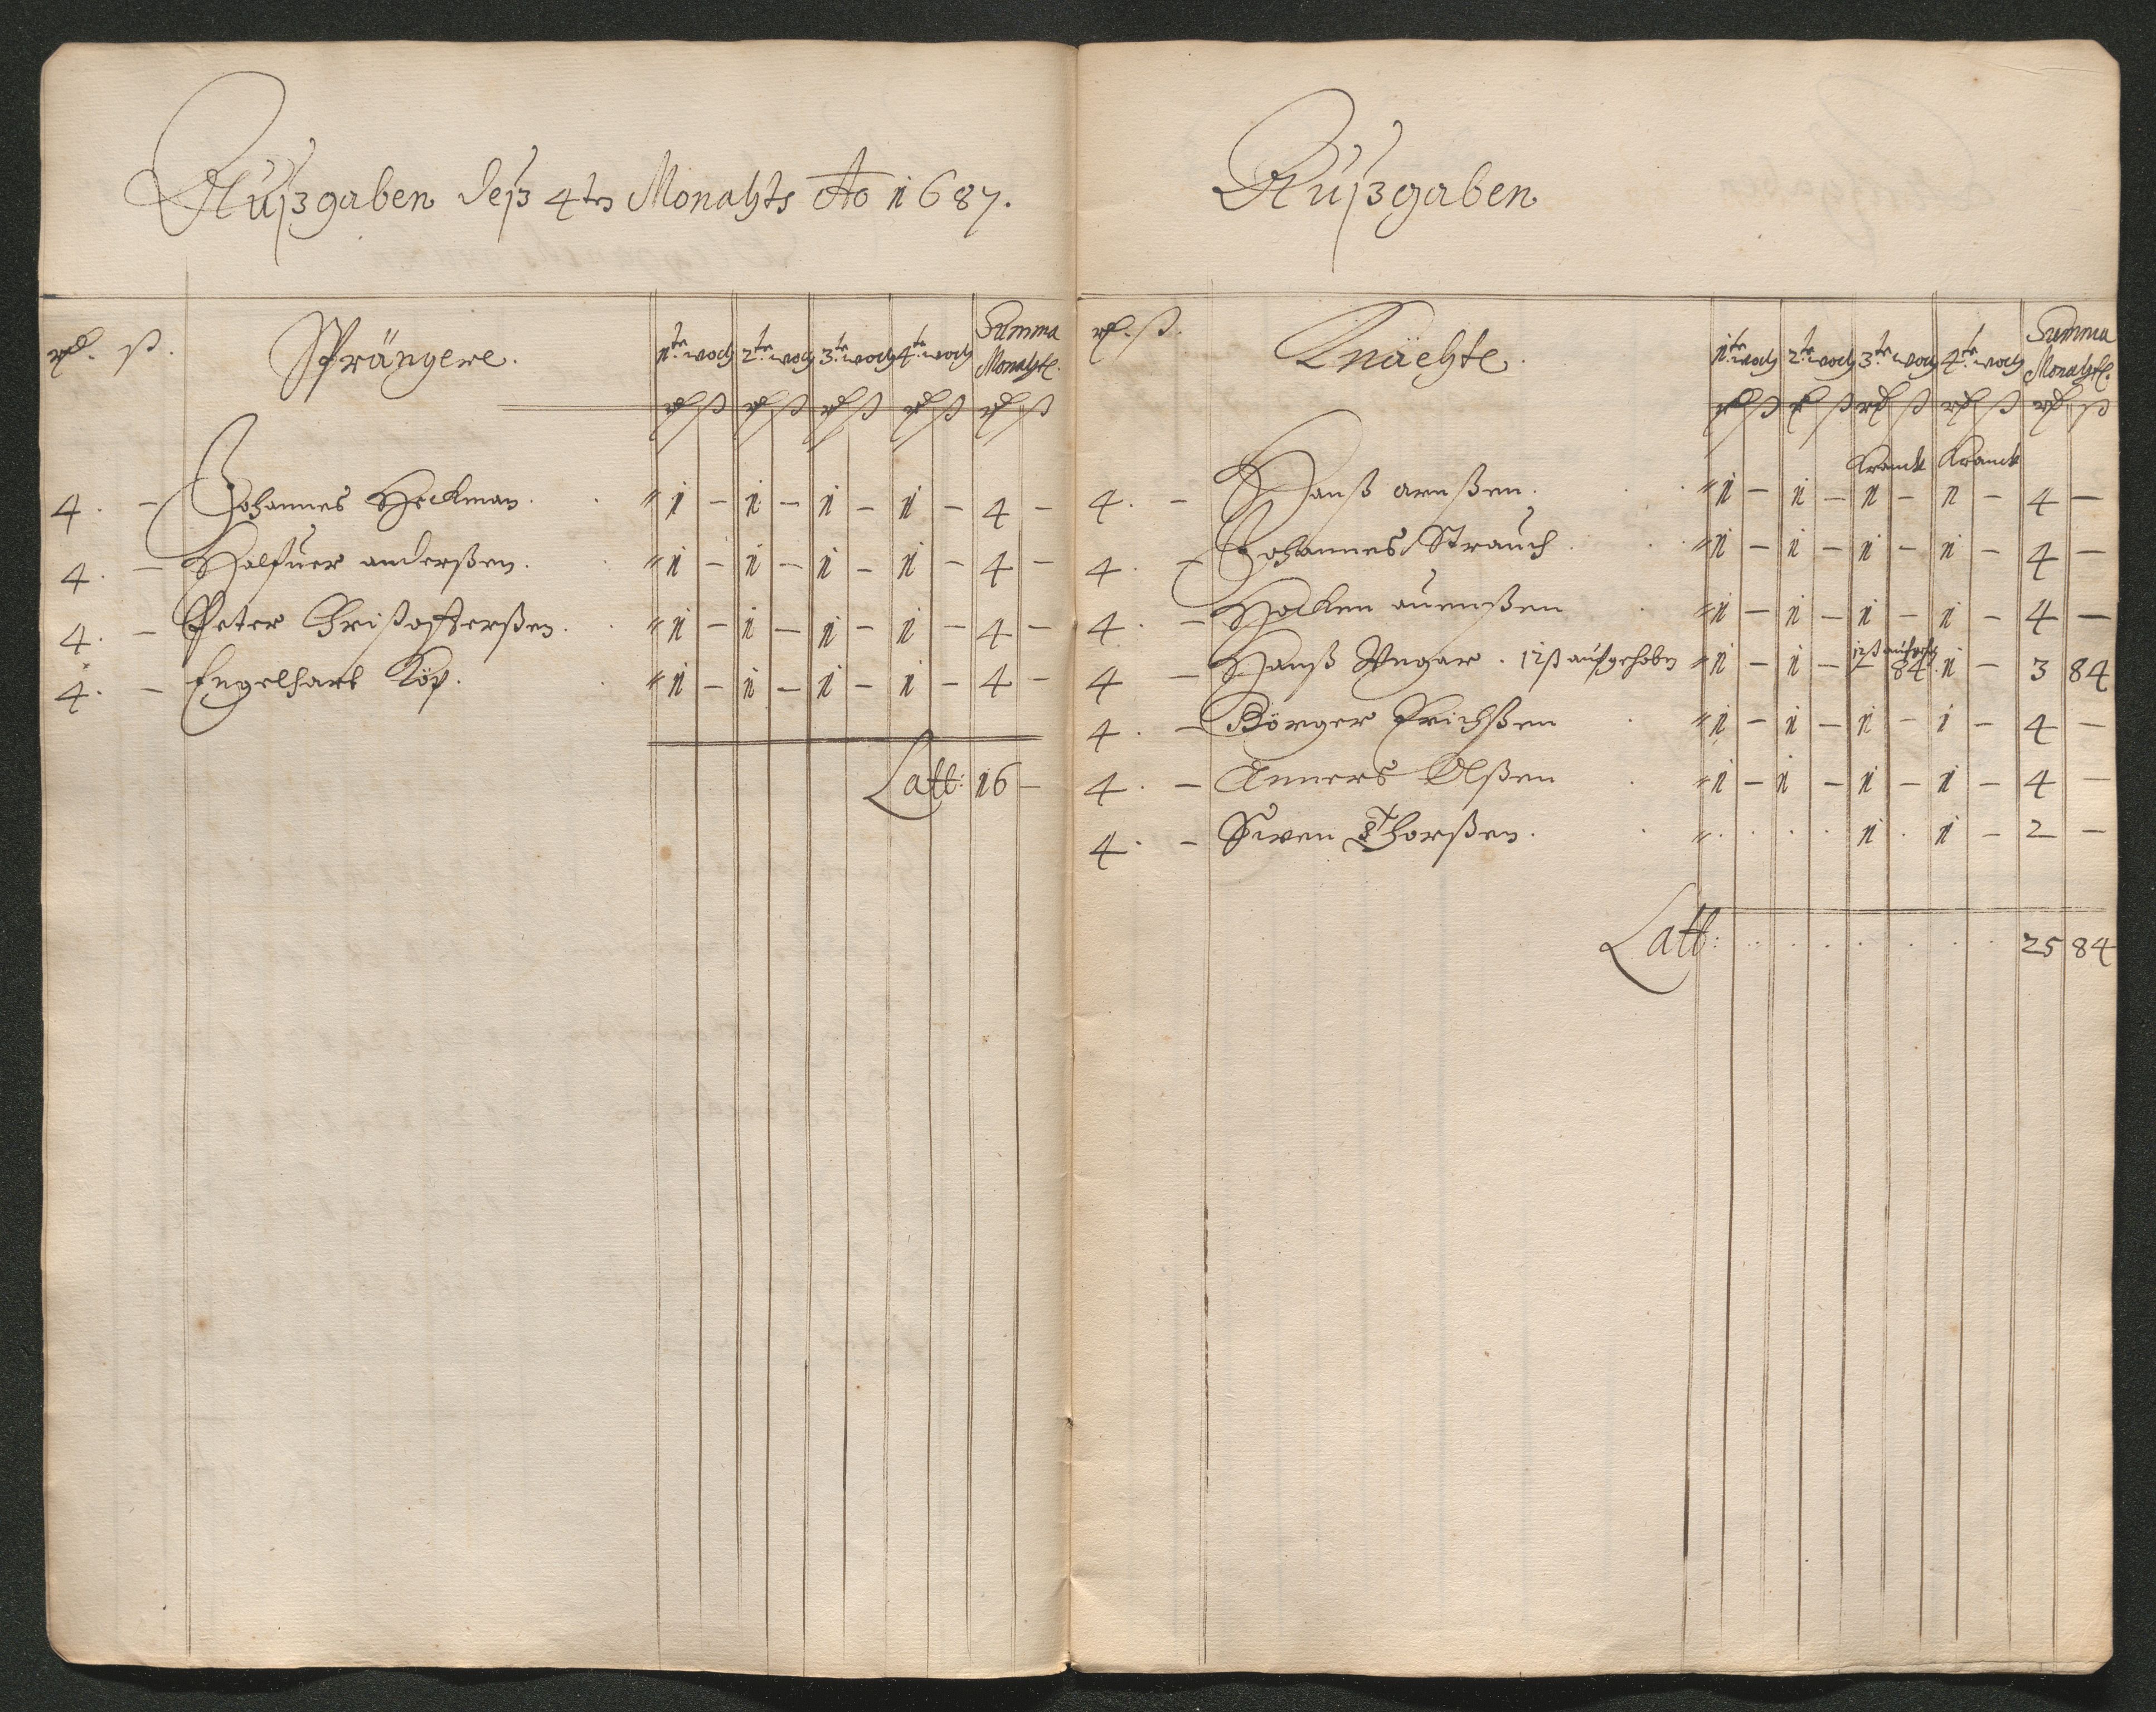 Außgaben deß 4ten Monahts Ao 1687.
rd. ß. Sprängere. 1te woch 2te woch 3te woch 4te woch Summa Monahtl.
rd ß rd ß rd ß rd ß rd ß
4. – Johannes Heckman. . " 1 – 1 – 1 – 1 – 4 –
4. – Halfuer anderßen. . " 1 – 1 – 1 – 1 – 4 –
4. – Peter Christofferßen. . " 1 – 1 – 1 – 1 – 4 –
4. – Engelhart Köp. . " 1 – 1 – 1 – 1 – 4 –
Latt: 16 –
Außgaben
rd. ß. Knächte. 1te woch 2te woch 3te woch 4te woch Summa Monahtl.
rd ß rd ß rd ß rd ß rd ß
Kranck Kranck
4. – Hanß arnßen. . . " 1 – 1 – 1 – 1 – 4 –
4. – Johannes Strauch . . . " 1 – 1 – 1 – 1 – 4 –
4. – Hacken auenßen . " 1 – 1 – 1 – 1 – 4 –
12ß aufgeh
4 – Hanß Ungar. 12ß aufgehobn " 1 – 1 – – 84. 1 – 3 84
4. – Börger Erichßen . " 1 – 1 – 1 – 1 – 4 –
4. – Anners Olßen . " 1 – 1 – 1 – 1 – 4 –
4. – Siven Thorßen. . " . . . . 1 . 1 – 2 –
Latt: . . . . . . . 25 84